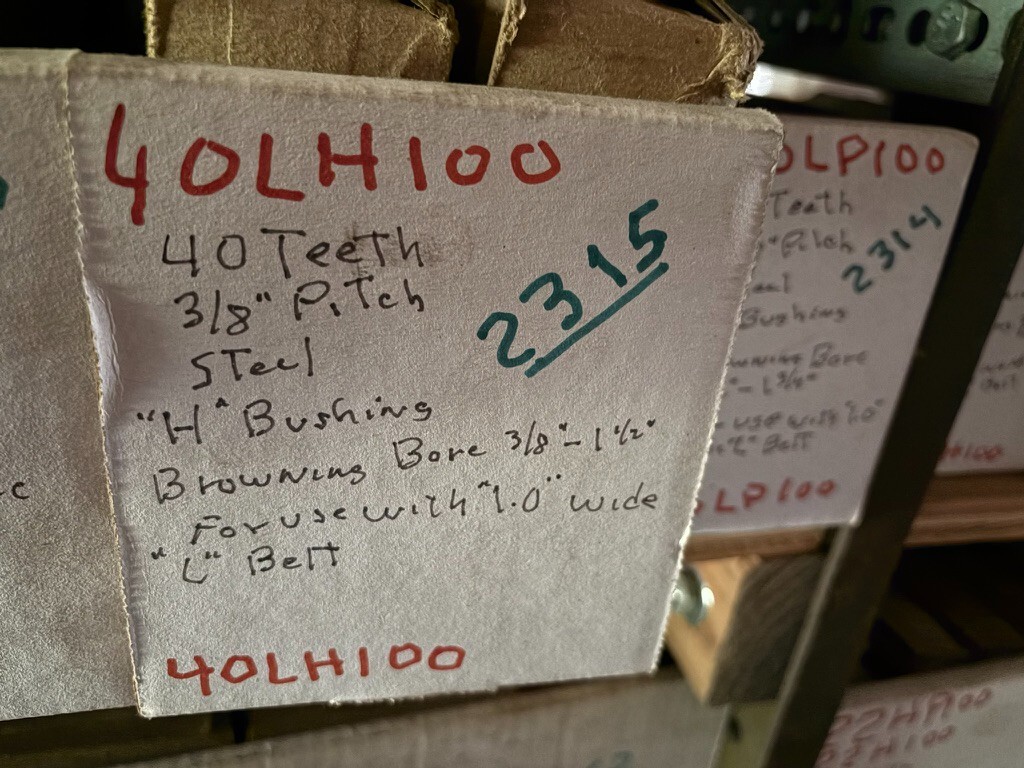 40LH100
40 Teeth
3/8" Pitch
Steel
2315
"H" Bushing
Browning Bore 3/8"-1 1/2"
For use with "1.0" wide
"L" Belt
40LH100
LP100
Teeth
Pitch
2314
Bushing
Bore
- 1 3/8"
use with "1.0"
"L" Belt
LP100
H100
22HP100
22H100